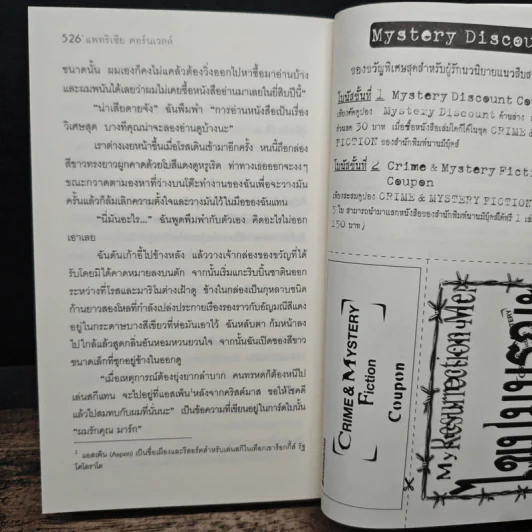 526 แพทริเซีย คอร์นเวลล์
ขนาดนั้น ผมเองก็คงไม่แคล้วต้องวิ่งออกไปหาซื้อมาอ่านบ้าง
และผมพนันได้เลยว่าผมไม่เคยซื้อหนังสืออ่านมาเลยในยี่สิบปีนี้”
“น่าเสียดายจัง” ฉันพึมพำ “การอ่านหนังสือเป็นเรื่อง
วิเศษสุด บางทีคุณน่าจะลองอ่านดูบ้างนะ”
เราต่างเงยหน้าขึ้นเมื่อโรสเดินเข้ามาอีกครั้ง หนนี้ถือกล่อง
สีขาวทรงยาวผูกคาดด้วยโบสีแดงดูหรูเริด ท่าทางเธอออกจะงงๆ
ขณะกวาดตามองหาที่ว่างบนโต๊ะทำงานของฉันเพื่อจะวางมัน
ครั้นแล้วก็ล้มเลิกความตั้งใจและวางมันไว้ในมือของฉันแทน
“นี่มันอะไร...” ฉันพูดพึมพำกับตัวเอง คิดอะไรไม่ออก
เอาเลย
ฉันดันเก้าอี้ไปข้างหลัง แล้ววางเจ้ากล่องของขวัญที่ได้
รับโดยมิได้คาดหมายลงบนตัก จากนั้นเริ่มแกะริบบิ้นซาตินออก
ระหว่างที่โรสและมาริโนต่างเฝ้าดู ข้างในกล่องเป็นกุหลาบชนิด
ก้านยาวสองโหลที่กำลังเปล่งประกายเรืองรองราวกับอัญมณีสีแดง
อยู่ในกระดาษบางสีเขียวที่ห่อมันเอาไว้ ฉันหลับตา ก้มหน้าลง
ไปใกล้แล้วสูดกลิ่นอันหอมหวนยวนใจ จากนั้นฉันเปิดซองสีขาว
ขนาดเล็กที่ซุกอยู่ข้างในออกดู
“เมื่อเหตุการณ์ต้องยุ่งยากลำบาก คนทรหดก็ต้องหนีไป
เล่นสกีแทน จะไปที่แอสเพ็น¹หลังจากคริสต์มาส ขอให้โชคดี
แล้วไปสมทบกับผมที่นั่นนะ” เป็นข้อความที่เขียนอยู่ในการ์ดใบนั้น
“ผมรักคุณ มาร์ก”
¹ แอสเพ็น (Aspen) เป็นชื่อเมืองและรีสอร์ตสำหรับเล่นสกีในเทือกเขาร็อกกี้ส์ รัฐ
โคโลราโด
Mystery Discou
ของขวัญพิเศษสุดสำหรับผู้รักนวนิยายแนวสืบส
โบนัสชั้นที่ 1 Mystery Discount Co
เพียงตัดคูปอง Mystery Discount ด้านล่าง
ส่วนลด 30 บาท เมื่อซื้อหนังสือเล่มใดก็ได้ในชุด CRIME &
FICTION ของสำนักพิมพ์นานมีบุ๊คส์
โบนัสชั้นที่ 2 Crime & Mystery Fictio
Coupon
เพียงสะสมคูปอง CRIME & MYSTERY FICTION
5 ใบ สามารถนำมาแลกหนังสือของสำนักพิมพ์นานมีบุ๊คส์ได้ฟรี 1 เล่
150 บาท)
CRIME & MYSTERY
Fiction
Coupon
My Resurrection Me